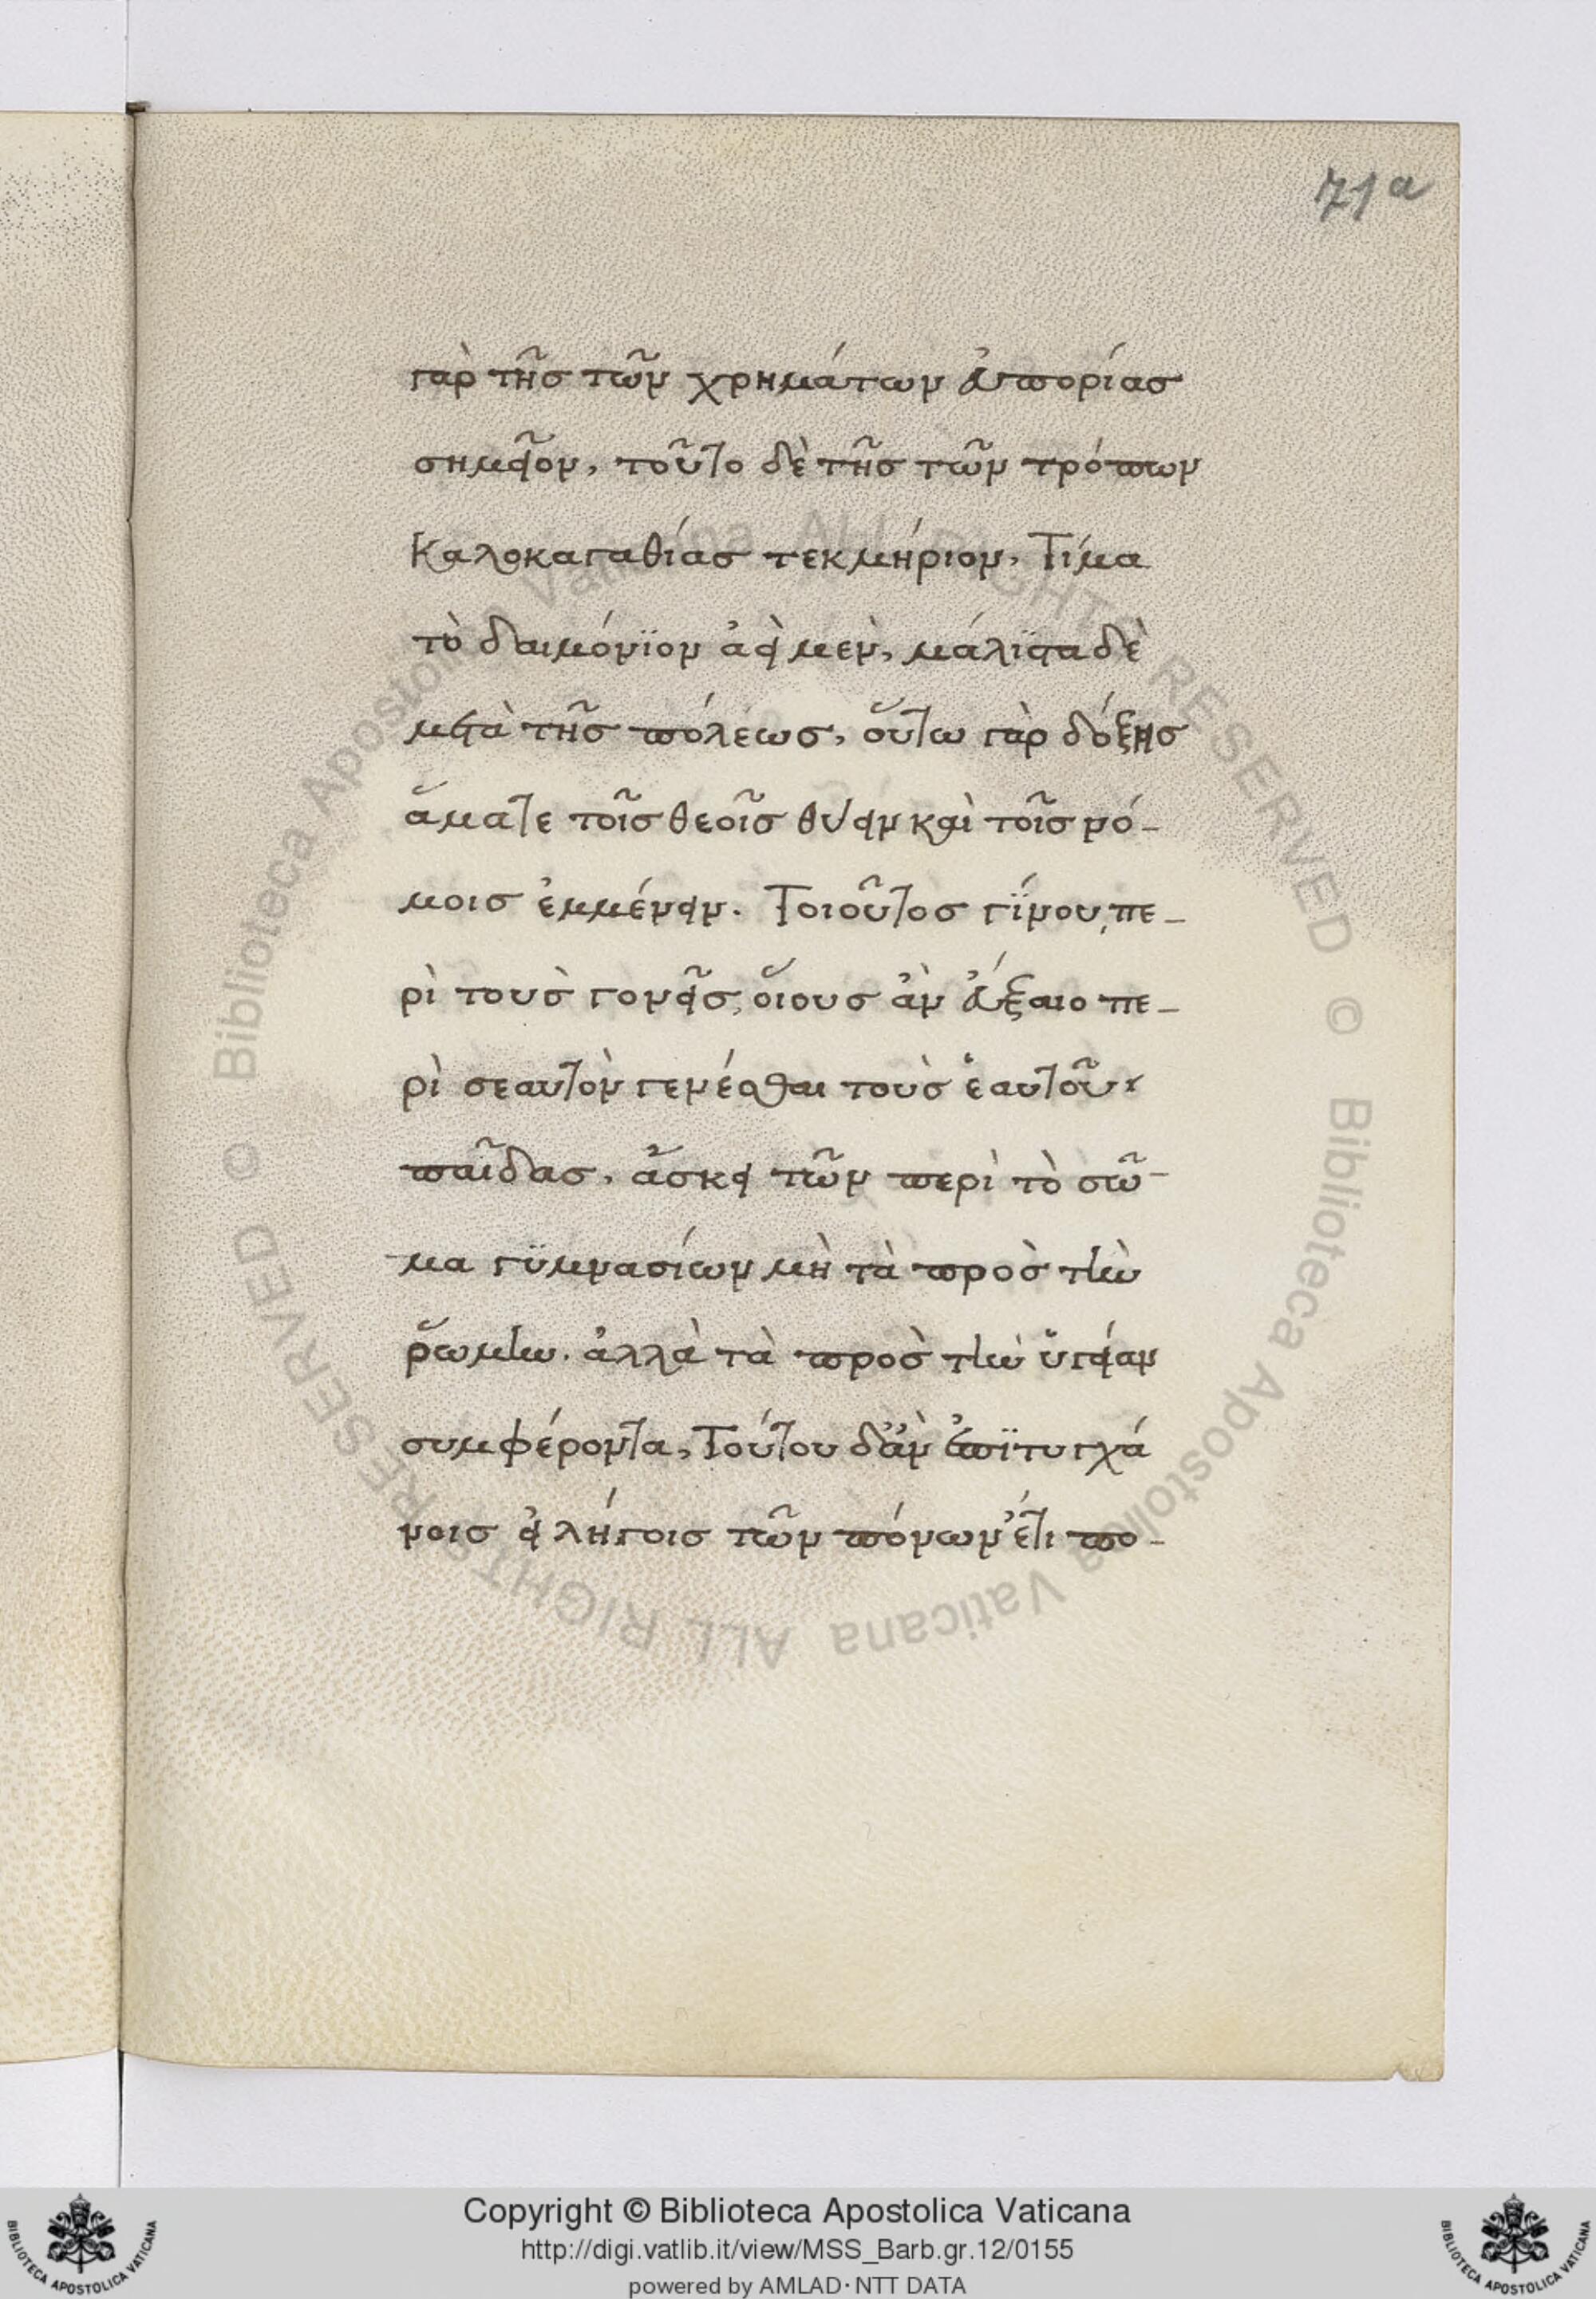 71a
γὰρ τῆς τῶν χρημάτων εὐπορίας
σημεῖον, τοῦτο δὲ τῆς τῶν τρόπων
Καλοκαγαθίας τεκμήριον, Τίμα
τὸ δαιμόνϊον ἀεὶ μὲν, μάλϊστα δὲ
μετὰ τῆς πόλεως, οὕτω γὰρ δόξῃς
ἅμα τε τοῖς θεοῖς θύειν καὶ τοῖς νό-
μοις ἐμμένειν. Τοιοῦτος γίνου, πε-
ρὶ τοὺς γονεῖς, οἵους ἂν εὔξαιο πε-
ρὶ σεαυτὸν γενέσθαι τοὺς ἑαυτοῦ
παῖδας, ἄσκει τῶν περὶ τὸ σῶ-
μα γϋμνασίων μὴ τὰ πρὸς τὴν
ῥώμην. ἀλλὰ τὰ πρὸς τὴν ὑγείαν
συμφέροντα, Τούτου δ' ἂν ἐπϊτυγχά
νοις εἰ λήγοις τῶν πόνων ἔτι πο-
Biblioteca Apostolica Vaticana ALL RIGHTS RESERVED ©
Biblioteca Apostolica Vaticana ALL RIGHTS RESERVED ©
Copyright © Biblioteca Apostolica Vaticana
http://digi.vatlib.it/view/MSS_Barb.gr.12/0155
powered by AMLAD·NTT DATA
BIBLIOTECA APOSTOLICA VATICANA
BIBLIOTECA APOSTOLICA VATICANA